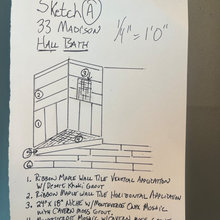 Sketch A
33 Madison
Hall Bath
1/4" = 1'0"
1. Ribbon Maple Wall Tile Vertical Application
W/ Desert Khaki Grout
2. Ribbon Maple Wall Tile Horizontal Application
3. 24" x 18" Niche w/ Monteverde Onyx Mosaic
with Cavern Moss Grout.